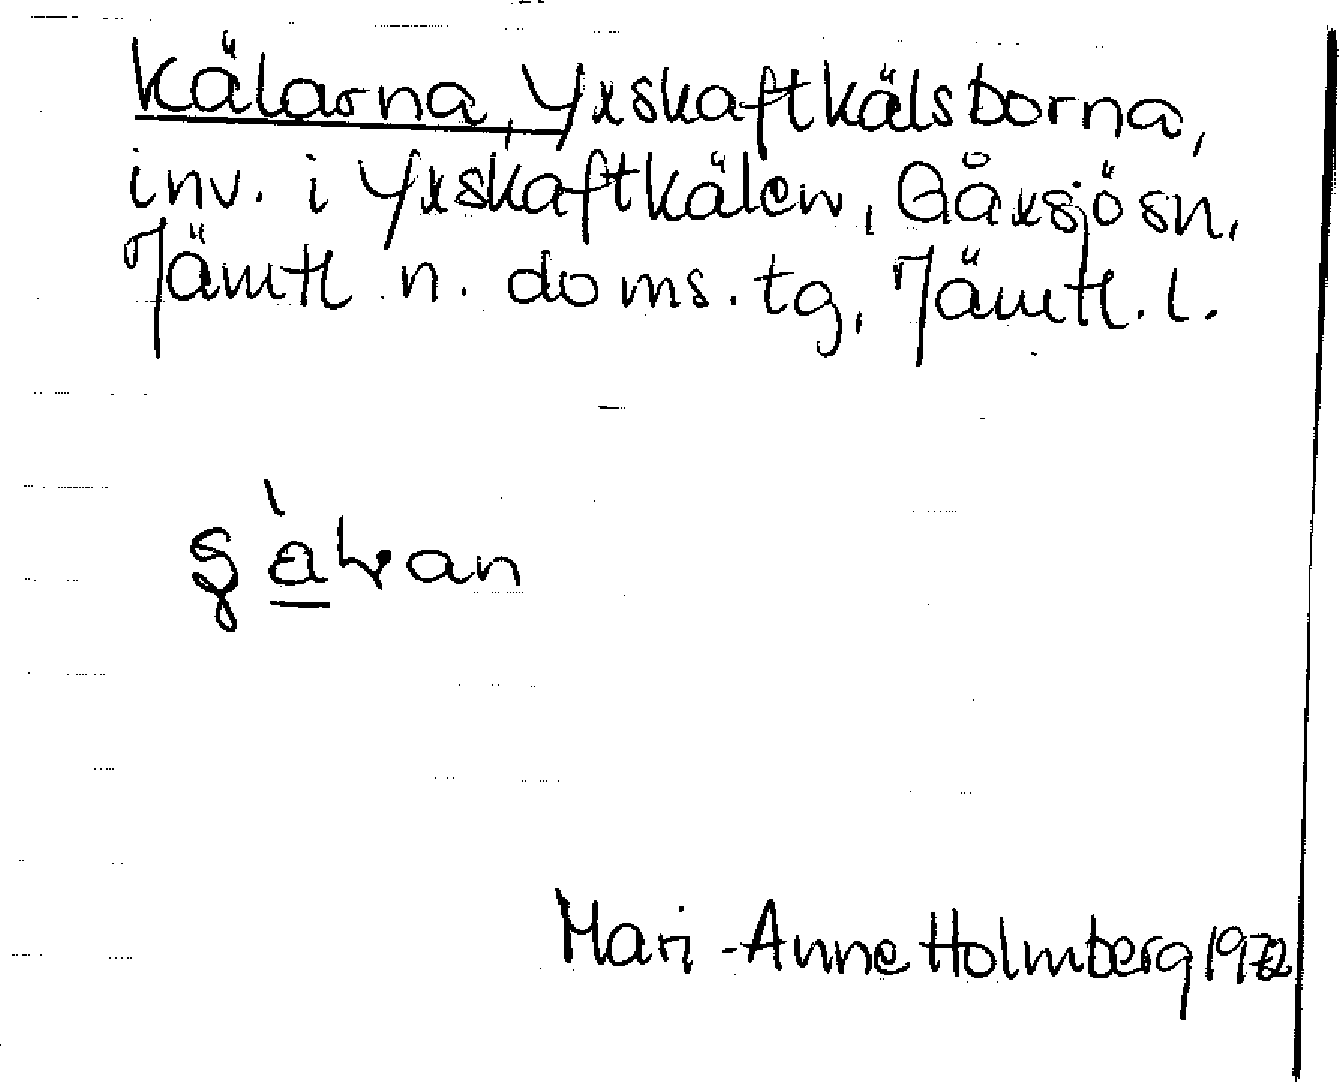 Kälarna, Yxskaftkälsborna,
inv. i Yxskaftkälen, Gåxsjö sn,
Jämtl n. doms. tg, Jämtl. l.
Mari-Anne Holmberg 1972